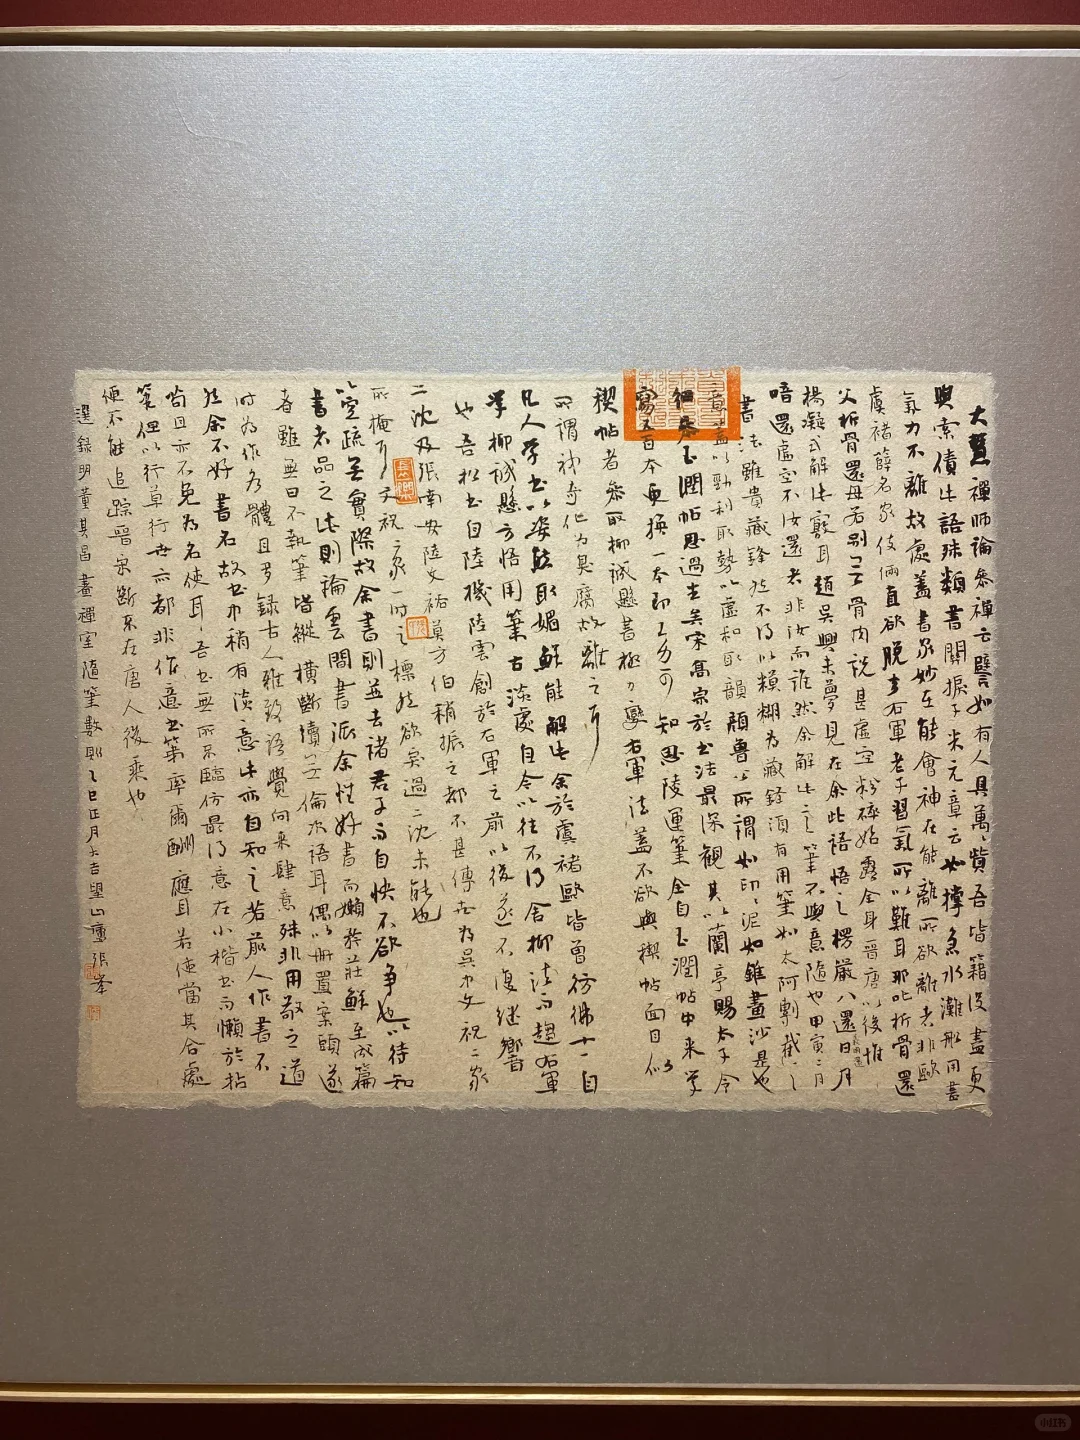 大慧禪師論參禪云譬如有人具萬〻貲吾皆籍沒盡更
與索債此語殊類書關捩子米元章云如撑急水灘船用盡
氣力不離故處蓋書家妙在能會神在能離所欲離者非歐
虞褚薛名家伎倆直欲脫去右軍老子習氣所以難耳那叱析骨還
父析骨還母若別無骨肉說甚虛空粉碎始露全身晉唐以後惟
楊凝式解此竅耳趙吳興未夢見在余此語悟之楞嚴八還日月
唔還虛空不汝還者非汝而誰然余解此之筆不與意隨也甲寅二月
書法雖貴藏鋒然不得以模糊為藏鋒須有用筆如太阿剸截之
意蓋以勁利取勢以虛和取韻顏魯公所謂如印〻泥如錐畫沙是也
細參玉潤帖思過半矣宋高宗於書法最深觀其以蘭亭賜太子令
寫五百本更換一本即工力可知思陵運筆全自玉潤帖中来學
禊帖者參取柳誠懸書極力變右軍法蓋不欲與禊帖面目似
所謂神奇化為臭腐故離之耳
凡人學書以姿態取媚鮮能解此余於虞褚歐皆曾彷彿十一自
學柳誠懸方悟用筆古淡處自今以往不得舍柳法而趨右軍
也吾松書自陸機陸雲創於右軍之前以後遂不復继響
二沈及張南安陸文裕莫方伯稍振之都不甚傳世為吳中文祝二家
所掩耳文祝二家一时之標然欲突過二沈未能也
以空疏无實際故余書則並去諸君子而自快不欲争也以待知
書者品之此則論雲間書派余性好書而懶矜莊鮮至成篇
者雖無日不執筆皆縱橫斷續無倫次語耳偶以册置案頭遂
时為作各體且多錄古人雅致語覺向来肆意殊非用敬之道
然余不好書名故书中稍有淡意此亦自知之若前人作書不
苟且亦不免為名使耳吾书無所不臨仿最得意在小楷书而懶於拈
筆但以行草行世亦都非作意书第率爾酬應耳若使當其合處
便不能追踪晉宋斷不在唐人後乘也
選錄明董其昌畫禪室隨筆數則乙巳正月